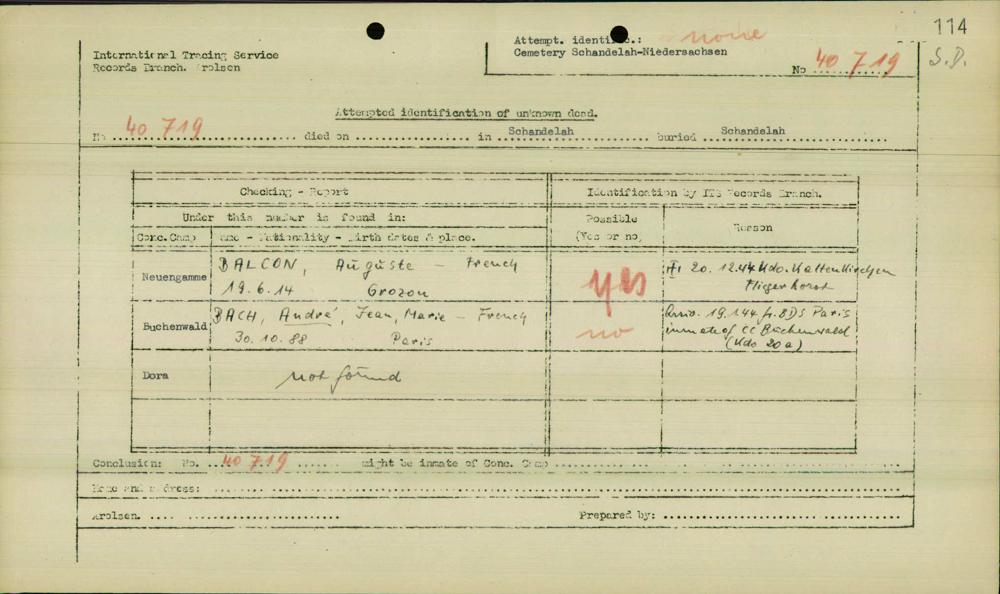 114
S.D.
International Tracing Service
Records Branch. Arolsen
Attempt. identific.: none
Cemetery Schandelah-Niedersachsen
No 40 719
Attempted identification of unknown dead.
No 40 719 died on .................. in Schandelah buried Schandelah
Checking - Report
Identification by ITS Records Branch.
Under this number is found in:
Possible
(Yes or no)
Reason
Conc.Camp
Name - Nationality - Birth dates & place.
Neuengamme
BALCON, Auguste - French
19.6.14 Grozon
yes
20.12.44 Kdo. Kaltenkirchen
Fliegerhorst
Buchenwald
BACH, André, Jean, Marie - French
30.10.88 Paris
no
19.1.44 fr. BDS Paris
inmate of CC Buchenwald
(Kdo 20a)
Dora
not found
Conclusion: No. 40 719 might be inmate of Conc. Camp
Name and address:
Arolsen.
Prepared by: